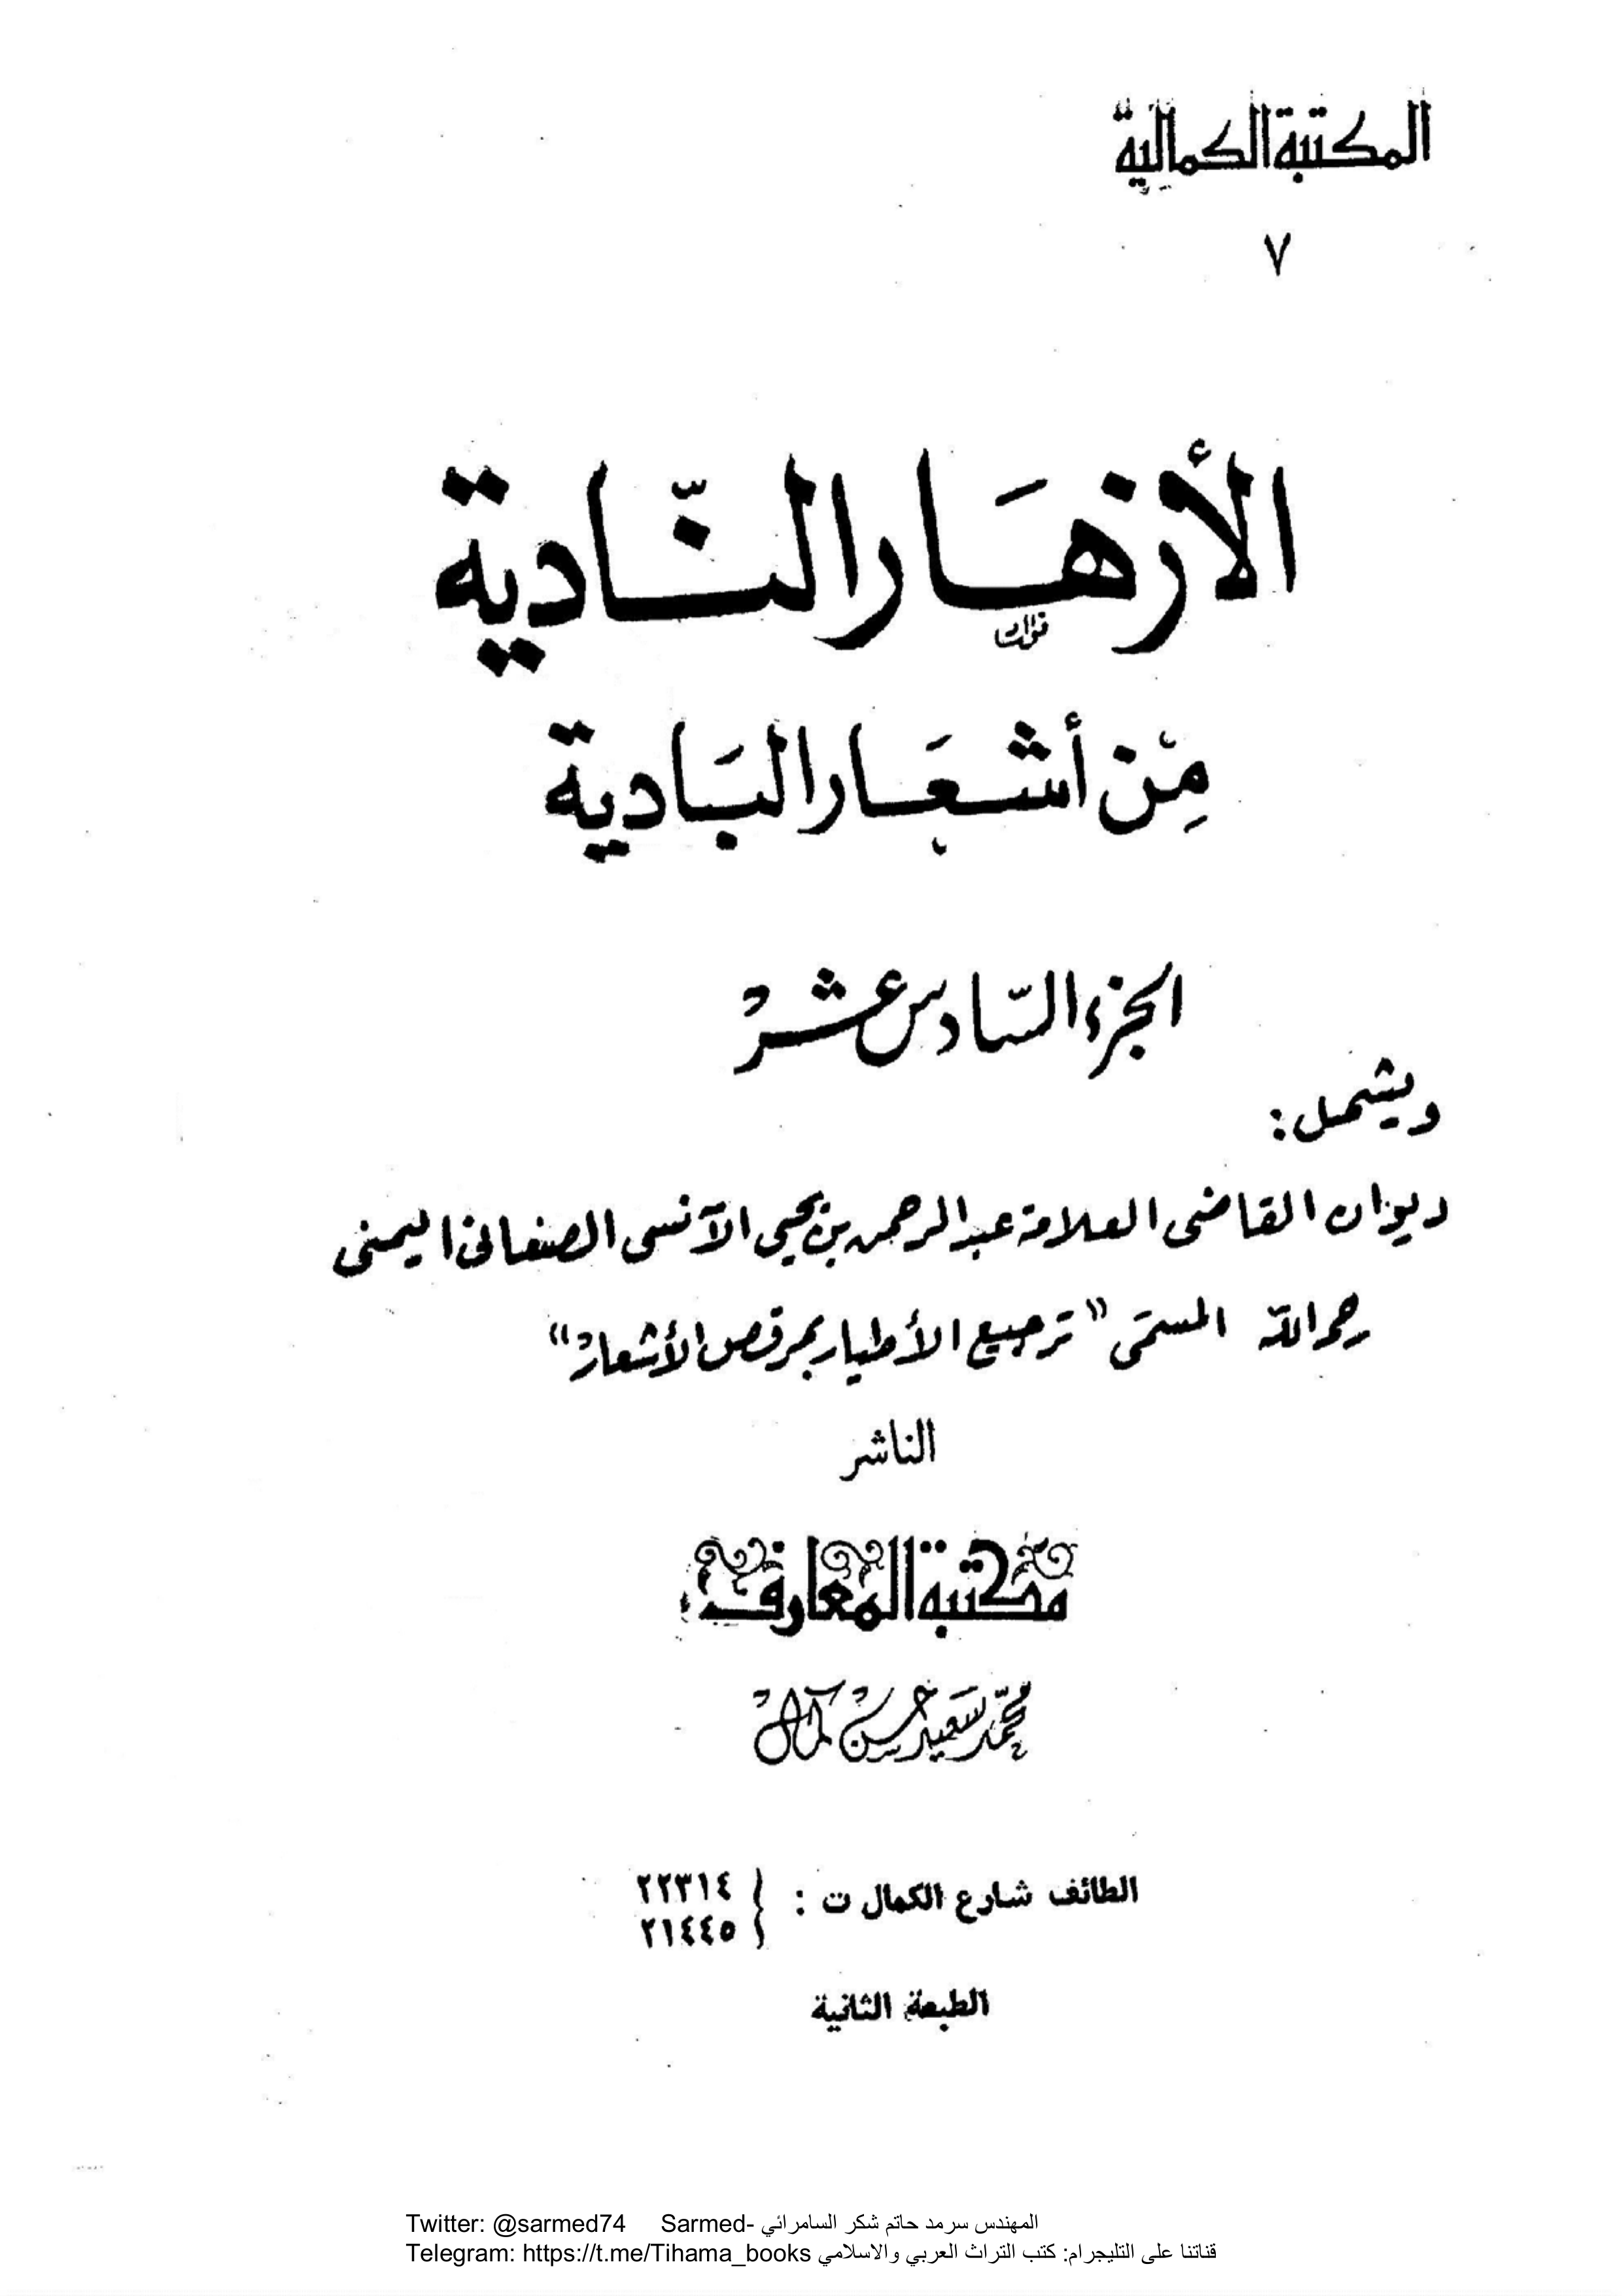 المكتبة الكمالية
٧
الأزهَار النّادية
مِنْ أشعَار البَادية
الجزء السّادس عشرْ
ويشمل :
ديوان القاضى العلامة عبدالرحمن بن يحيى الآنسى الصنعانى اليمنى
رحمه الله المسمّى "ترجيع الأطيار بمرقص الأشعارْ"
الناشر
مكتبة المعارف
محمّد سَعيد حسنْ كمالْ
الطائف شارع الكمال ت : { ٢٢٣١٤
٢١٤٤٥
الطبعة الثانية
Twitter: @sarmed74 Sarmed- المهندس سرمد حاتم شكر السامرائي
Telegram: https://t.me/Tihama_books قناتنا على التليجرام: كتب التراث العربي والاسلامي